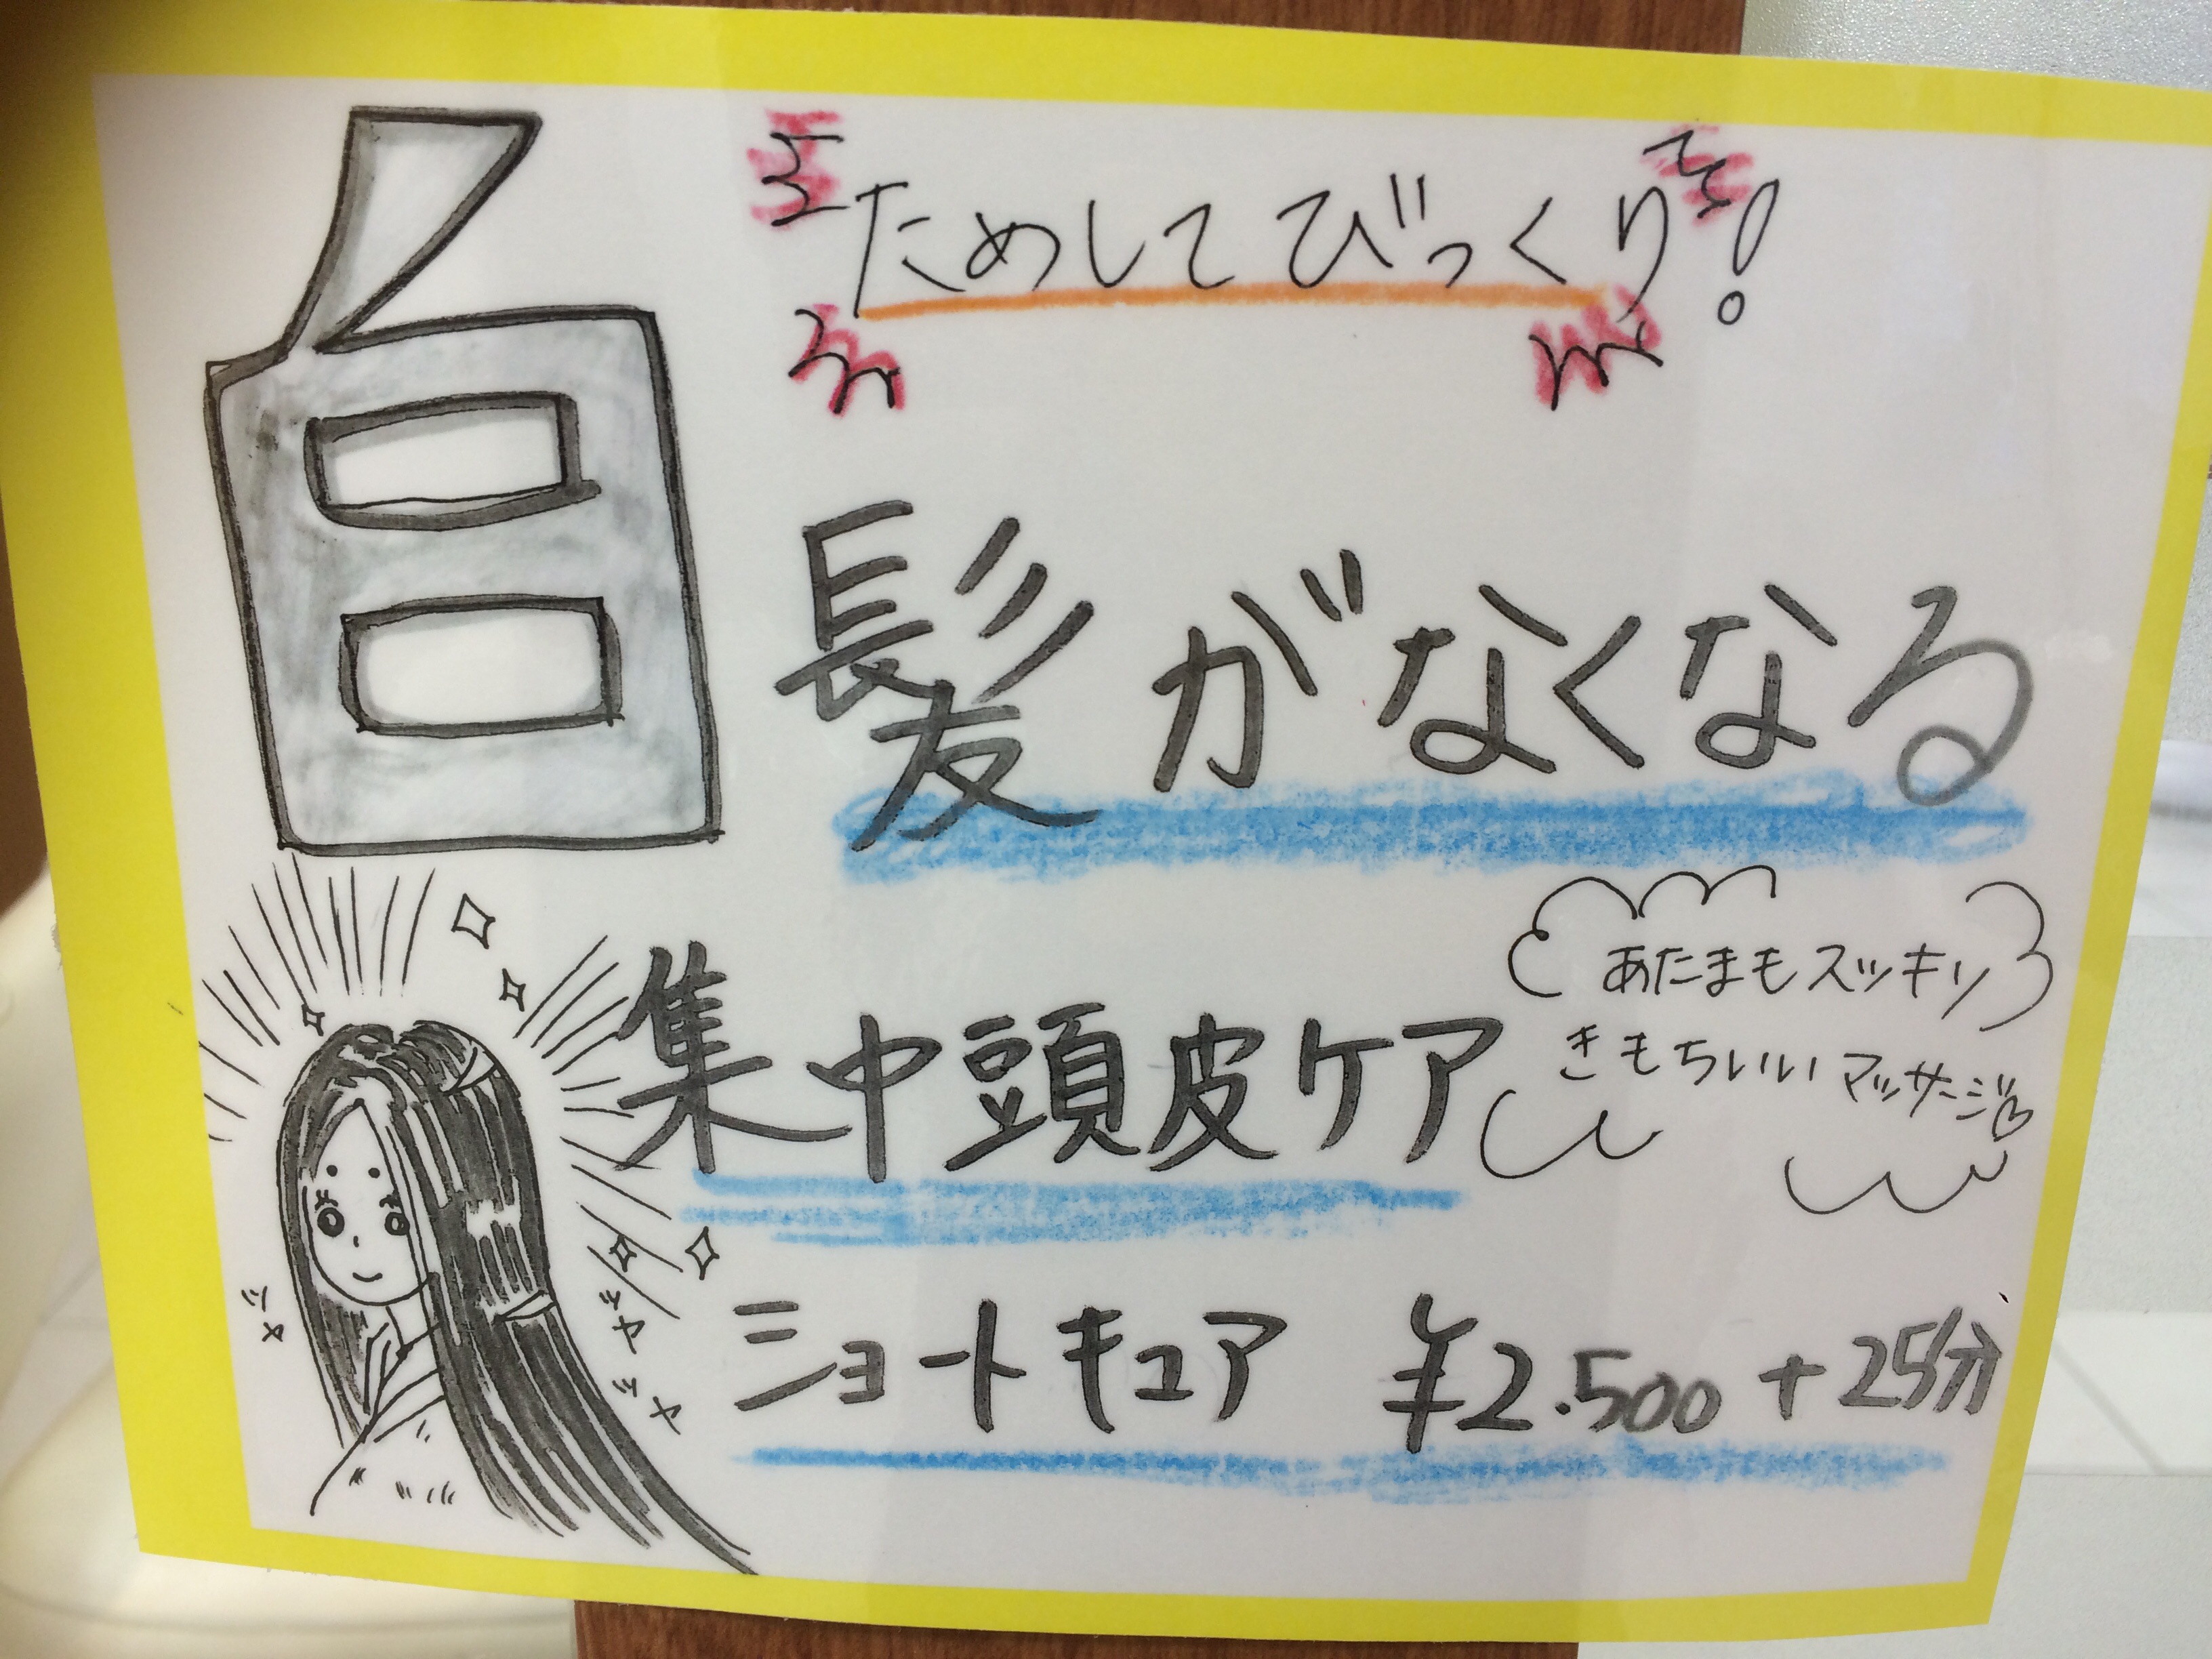 ためしてびっくり!
白髪がなくなる
集中頭皮ケア
あたまもスッキリ
きもちいいマッサージ♡
ショートキュア ¥2.500+25分
ツヤ
ツヤ
ツヤ